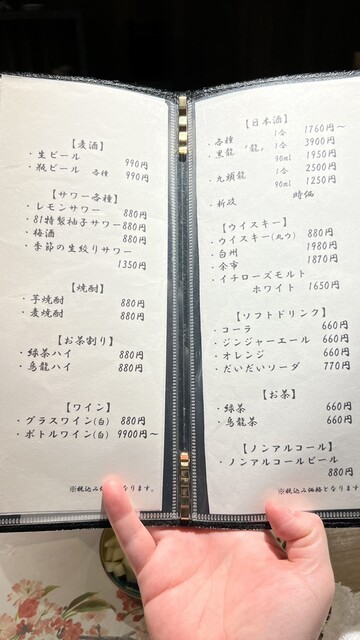 【麦酒】
・生ビール 990円
・瓶ビール 各種 990円
【サワー各種】
・レモンサワー 880円
・81特製柚子サワー 880円
・梅酒 880円
・季節の生絞りサワー
1350円
【焼酎】
・芋焼酎 880円
・麦焼酎 880円
【お茶割り】
・緑茶ハイ 880円
・烏龍ハイ 880円
【ワイン】
・グラスワイン(白) 880円
・ボトルワイン(白) 9900円～
※税込み なります。
【日本酒】
・各種 1合 1760円～
・黒龍 「龍」 1合 3900円
90ml 1950円
・九頭龍 1合 2500円
90ml 1250円
時価
【ウイスキー】
・ウイスキー 880円
・白州 1980円
・余市 1870円
・イチローズモルト
ホワイト 1650円
【ソフトドリンク】
・コーラ 660円
・ジンジャーエール 660円
・オレンジ 660円
・だいだいソーダ 770円
【お茶】
・緑茶 660円
・烏龍茶 660円
【ノンアルコール】
・ノンアルコールビール
880円
※税込み価格となります。